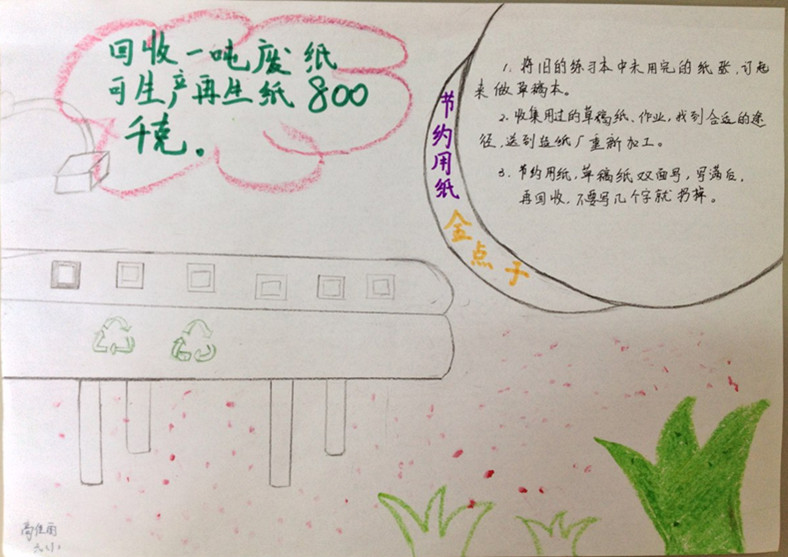 回收一吨废纸
可生产再生纸800
千克。
节约用纸
金点子
1. 将旧的练习本中未用完的纸张,订起
来做草稿本。
2. 收集用过的草稿纸、作业,找到合适的途
径,送到造纸厂重新加工。
3. 节约用纸,草稿纸双面写,写满后,
再回收,不要写几个字就扔掉。